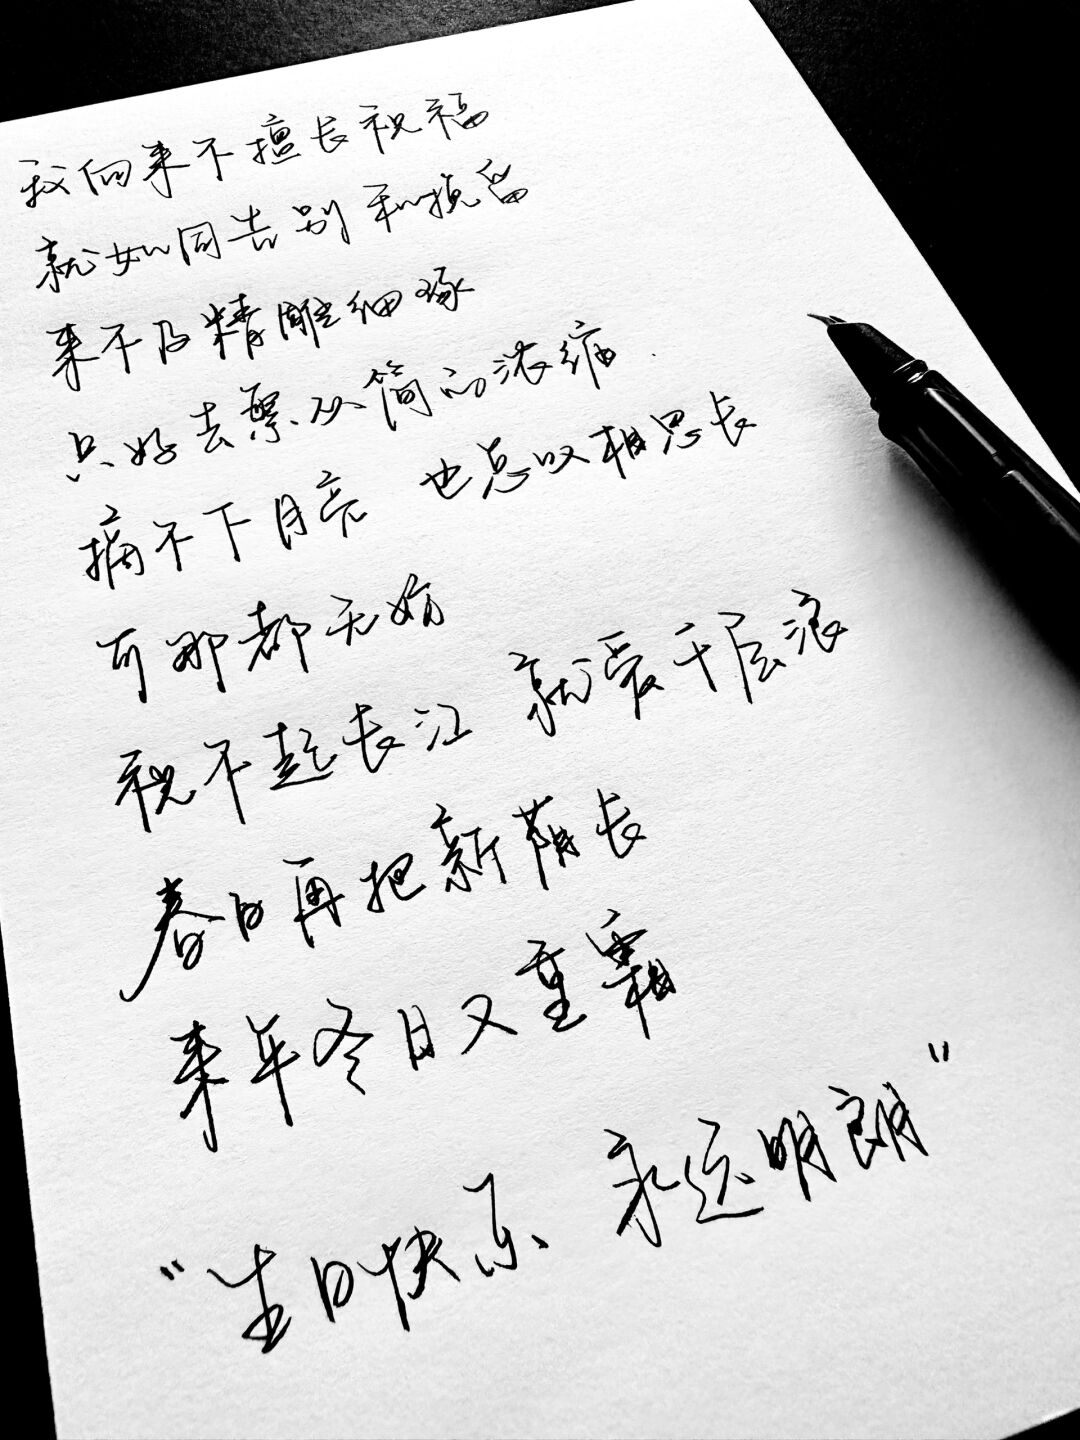 我向来不擅长祝福
就如同告别和挽留
来不及精雕细琢
只好去繁从简的浓缩
摘不下月亮 也总叹相思长
可那都无妨
祝不起长江 就爱千层浪
春日再把新荫长
来年冬日又重霜
“生日快乐、永远明朗”